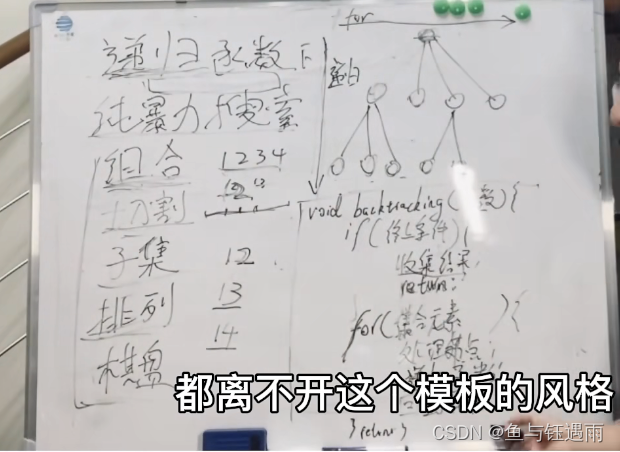 for
递归函数下
纯暴力搜索
递归
组合 1234
切割
子集 12
排列 13
棋盘 14
void backtracking(参数){
if(终止条件){
收集结果;
return;
for(集合元素){
处理节点;
都离不开这个模板的风格
}return;
CSDN @鱼与钰遇雨